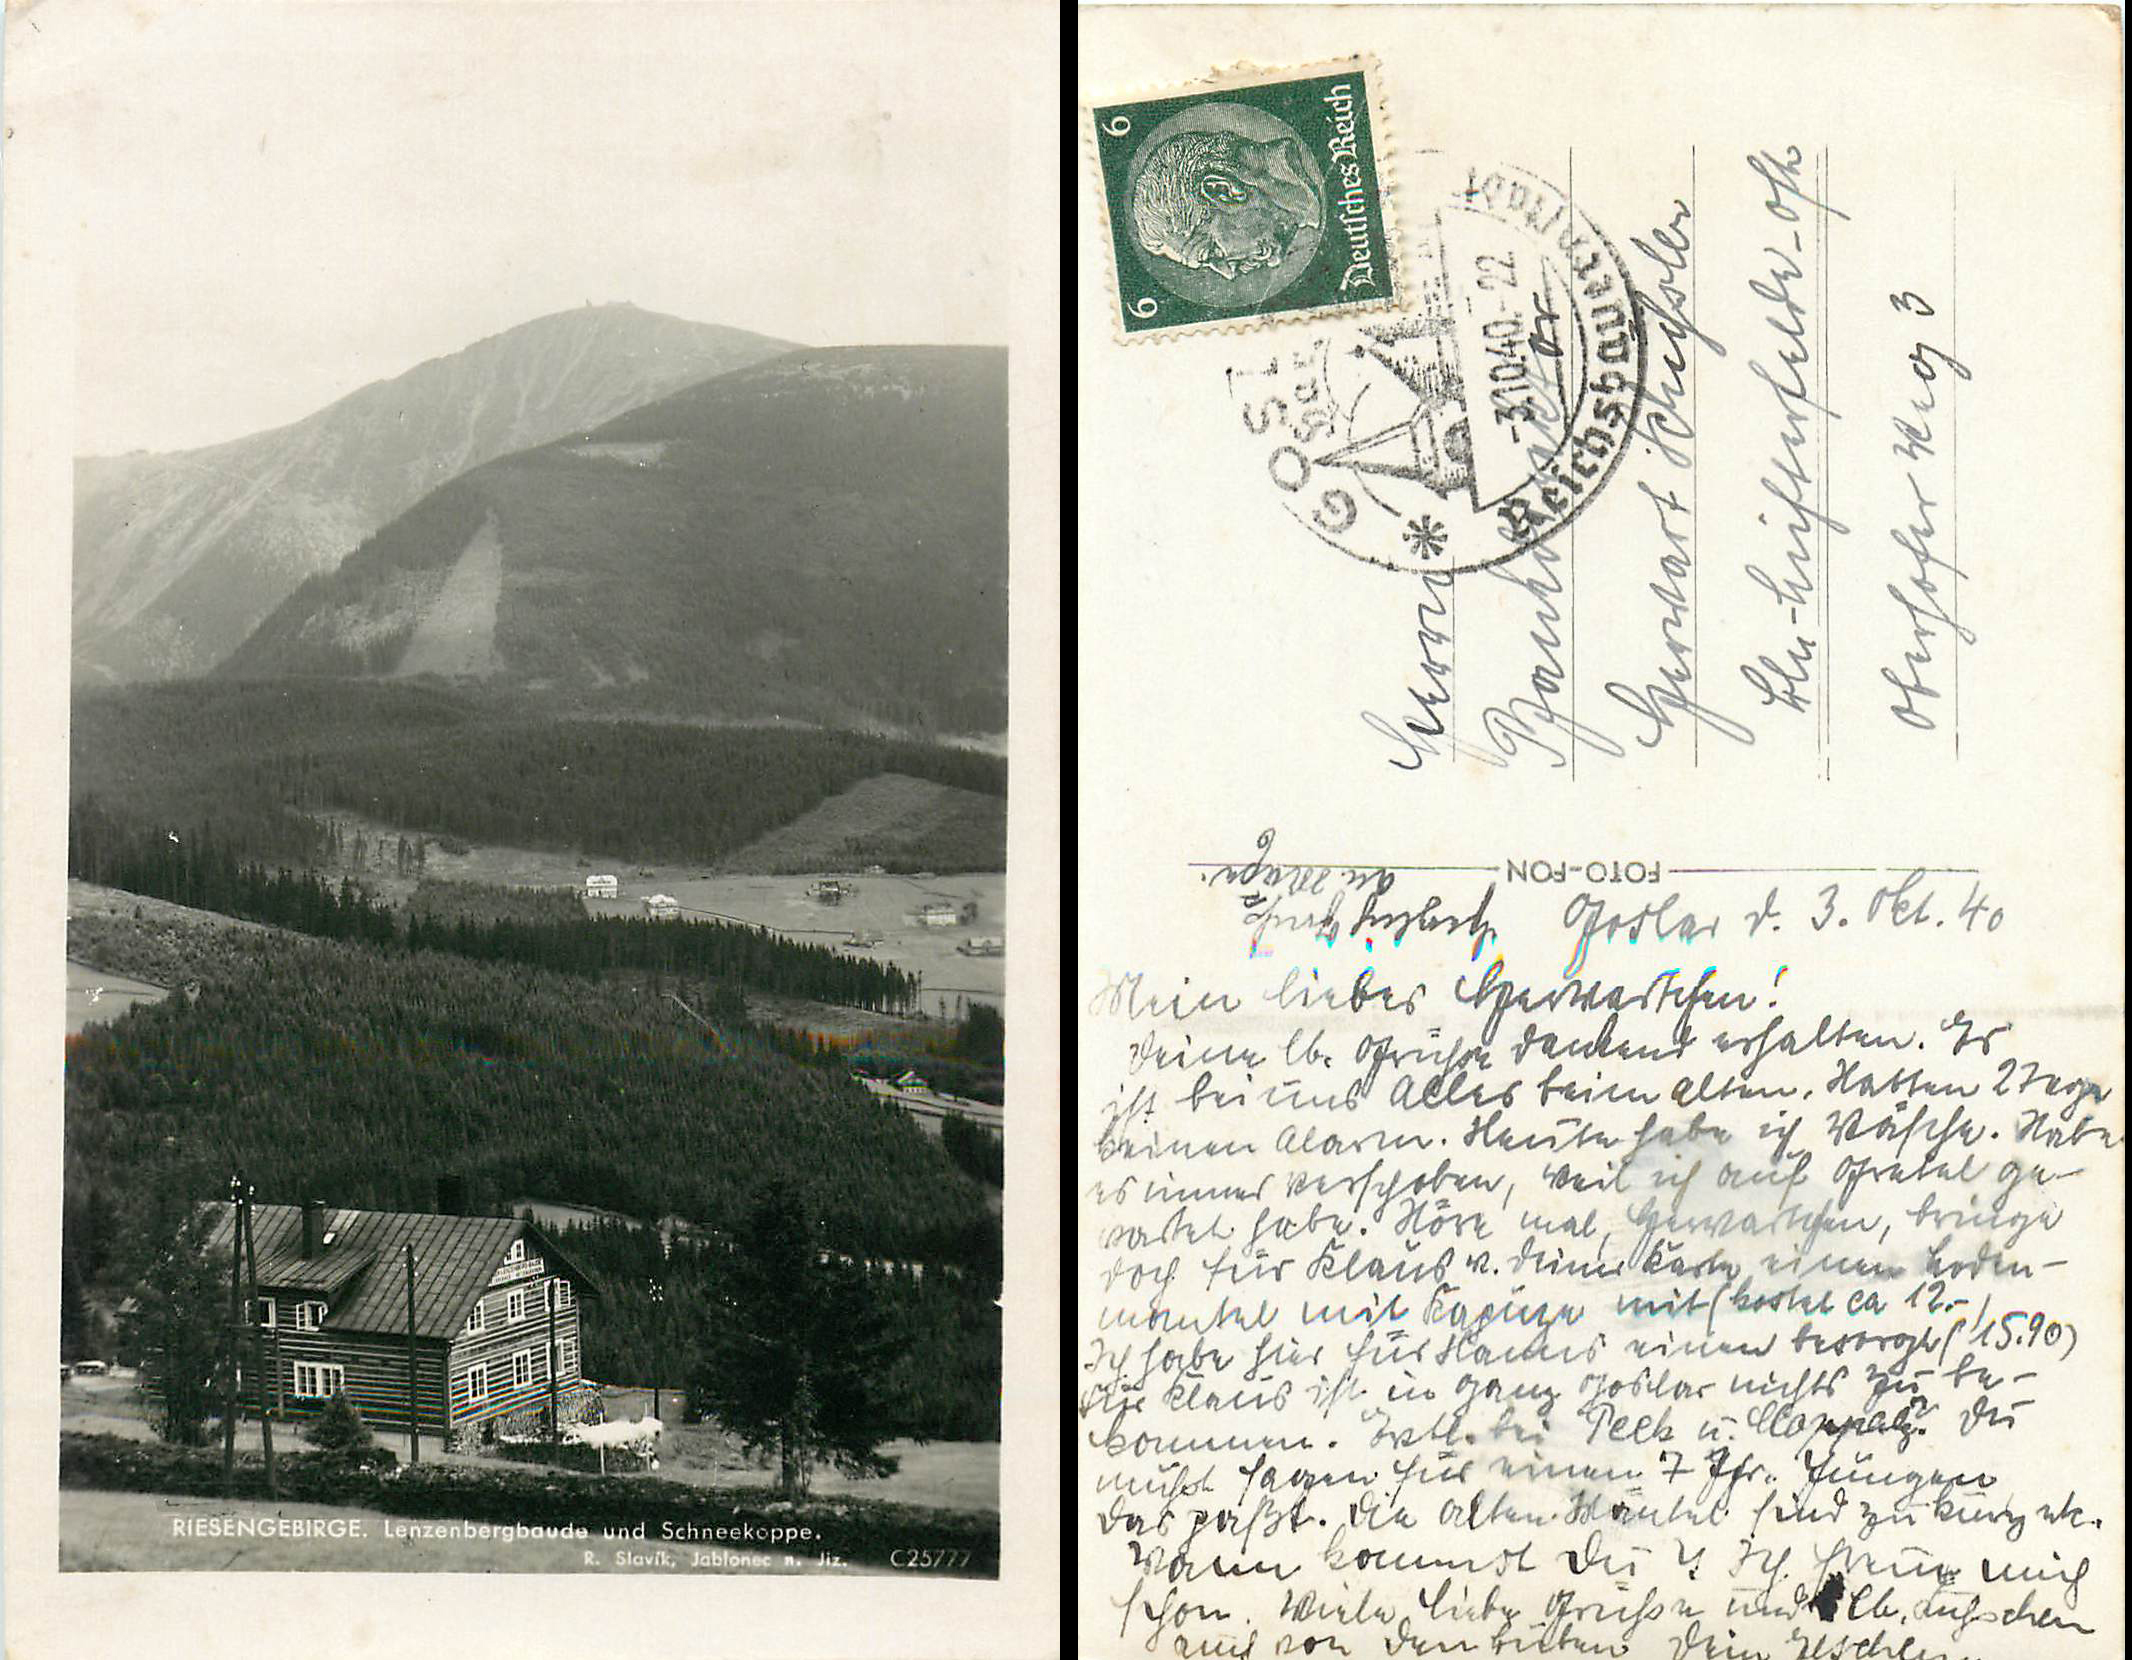 RIESENGEBIRGE. Lenzenbergbaude und Schneekoppe.
R. Slavík, Jablonec n. Jiz. C25777
6 6
Deutsches Reich
GOSLAR
-3.10.40.-22
Reichsbauernstadt
Herrn
Herwart
Bln-Lichterfelde-Ost
Oberhofer Weg 3
FOTO-FON
Goslar d. 3. Okt. 40
Mein liebes Herwartchen!
Deine lb. Grüsse dankend erhalten. Es
ist bei uns Alles beim alten. Hatten 2 Tage
keinen Alarm. Heute habe ich Wäsche. Habe
es immer verschoben, weil ich auf Gretel ge-
wartet habe. Höre mal, Herwartchen, bringe
doch für Klaus v. Deiner Karte einen Loden-
mantel mit Kapuze mit (kostet ca 12.-)
Ich habe hier für Hanns einen besorgt (15.90)
Für Klaus ist in ganz Goslar nichts zu be-
kommen. Evtl. bei Peek u. Clopp. Du
mußt sagen für einen 7 Jhr. Jungen
das paßt. Die alten Mäntel sind zu kurz etc.
Wann kommst Du? Ich freue mich
schon. Viele liebe Grüsse und lb. Küsschen
auch von den Buben Dein